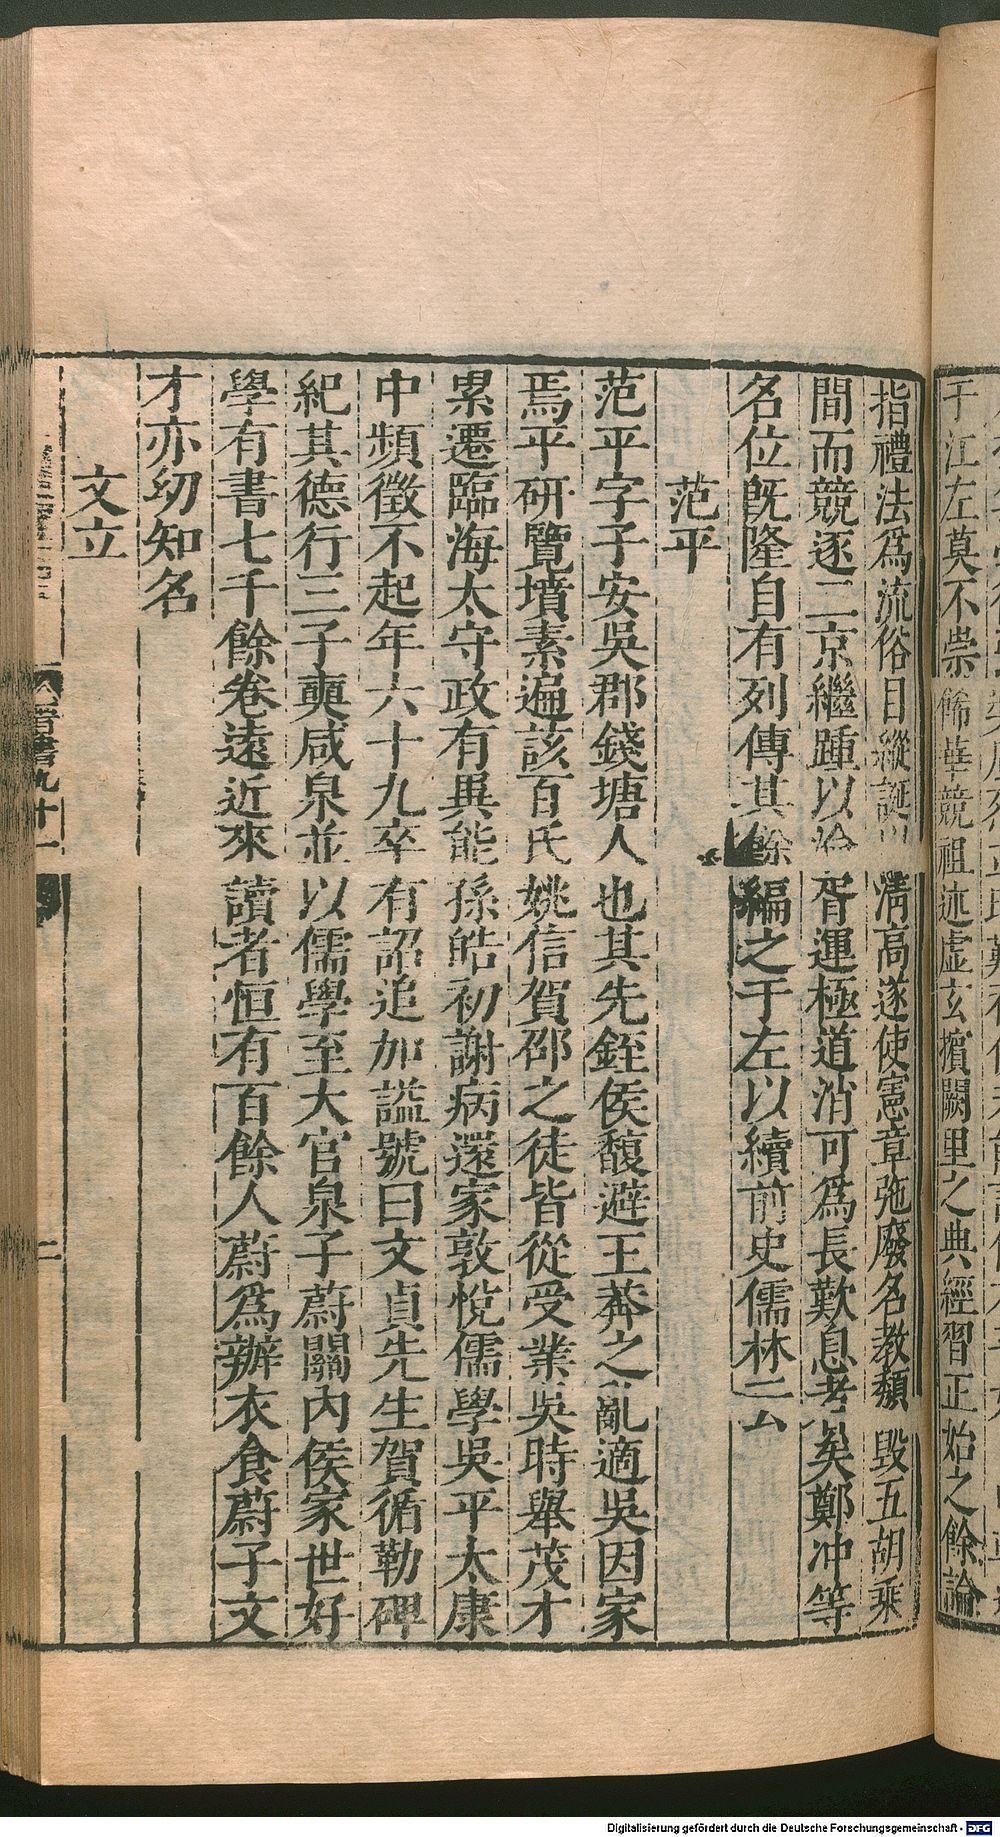 于江左莫不崇飾華競祖述虛玄擯闕里之典經習正始之餘論
指禮法爲流俗目縱誕以清高遂使憲章弛廢名教頹毀五胡乘
間而競逐二京繼踵以淪胥運極道消可爲長歎息者矣鄭冲等
名位旣隆自有列傳其餘編之于左以續前史儒林云
范平
范平字子安吳郡錢塘人也其先銍侯馥避王莽之亂適吳因家
焉平研覽墳素遍該百氏姚信賀邵之徒皆從受業吳時舉茂才
累遷臨海太守政有異能孫皓初謝病還家敦悅儒學吳平太康
中頻徵不起年六十九卒有詔追加謚號曰文貞先生賀循勒碑
紀其德行三子奭咸泉並以儒學至大官泉子蔚關內侯家世好
學有書七千餘卷遠近來讀者恒有百餘人蔚爲辦衣食蔚子文
才亦㓜知名
文立
晉書九十一
二
Digitalisierung gefördert durch die Deutsche Forschungsgemeinschaft - DFG